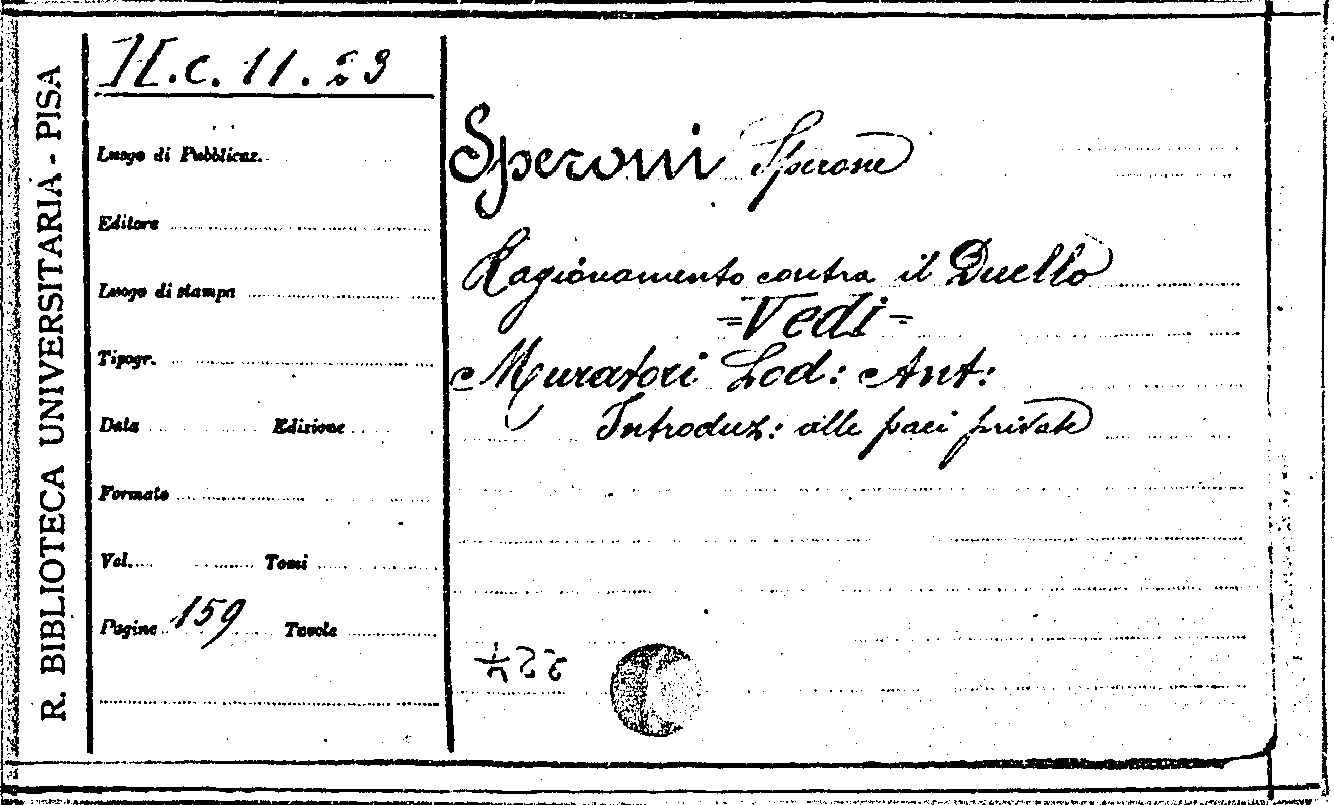 R. BIBLIOTECA UNIVERSITARIA - PISA
H.c. 11. 23
Luogo di Pubblicaz.
Editore
Luogo di stampa
Tipogr.
Data Edizione
Formato
Vol. Tomi
Pagine 159 Tavole
Speroni Sperone
Ragionamento contra il Duello
=Vedi=
Muratori Lod: Ant:
Introduz: alle paci private